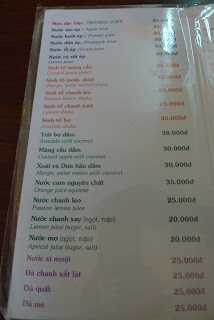 Món đặc biệt: TIRAMISU JUICE 30.000đ
Nước táo ép / Apple juice
Nước bưởi ép / Pomelo juice
Nước dứa ép / Pineapple juice
Nước ổi ép / Guava juice
Nước cà rốt ép
Carrot juice
Sinh tố mãng cầu
Custard apple shake
Sinh tố (xoài, dưa)
(Mango, water melon) shake
Sinh tố chanh leo
Passion lemon shake
Sinh tố chanh tươi 25.000đ
Lemon shake
Sinh tố bơ 35.000đ
Avocado shake
Trái bơ dầm 30.000đ
Avocado with coconut
Mãng cầu dầm 30.000đ
Custard apple with coconut
Xoài và Dưa hấu dầm 30.000đ
Mango, water melon with coconut
Nước cam nguyên chất 35.000đ
Orange juice squeeze
Nước chanh leo 25.000đ
Passion lemon juice
Nước chanh xay (ngọt, mặn) 20.000đ
Lemon juice (sugar, salt)
Nước mơ (ngọt, mặn) 20.000đ
Apricot juice (sugar, salt)
Nước xí muội 25.000đ
Đá chanh xắt lát 25.000đ
Đá quất 25.000đ
Đá me 25.000đ